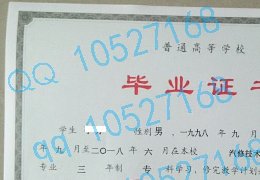 QQ 10527168
普通高等学校
毕业证
学生 性别 男，一九九八 年 九 月
年 九 月至二〇一八 年 六 月在本校 汽修技术
专业 三 年制 专 科学习，修完教学计划
QQ 10527168